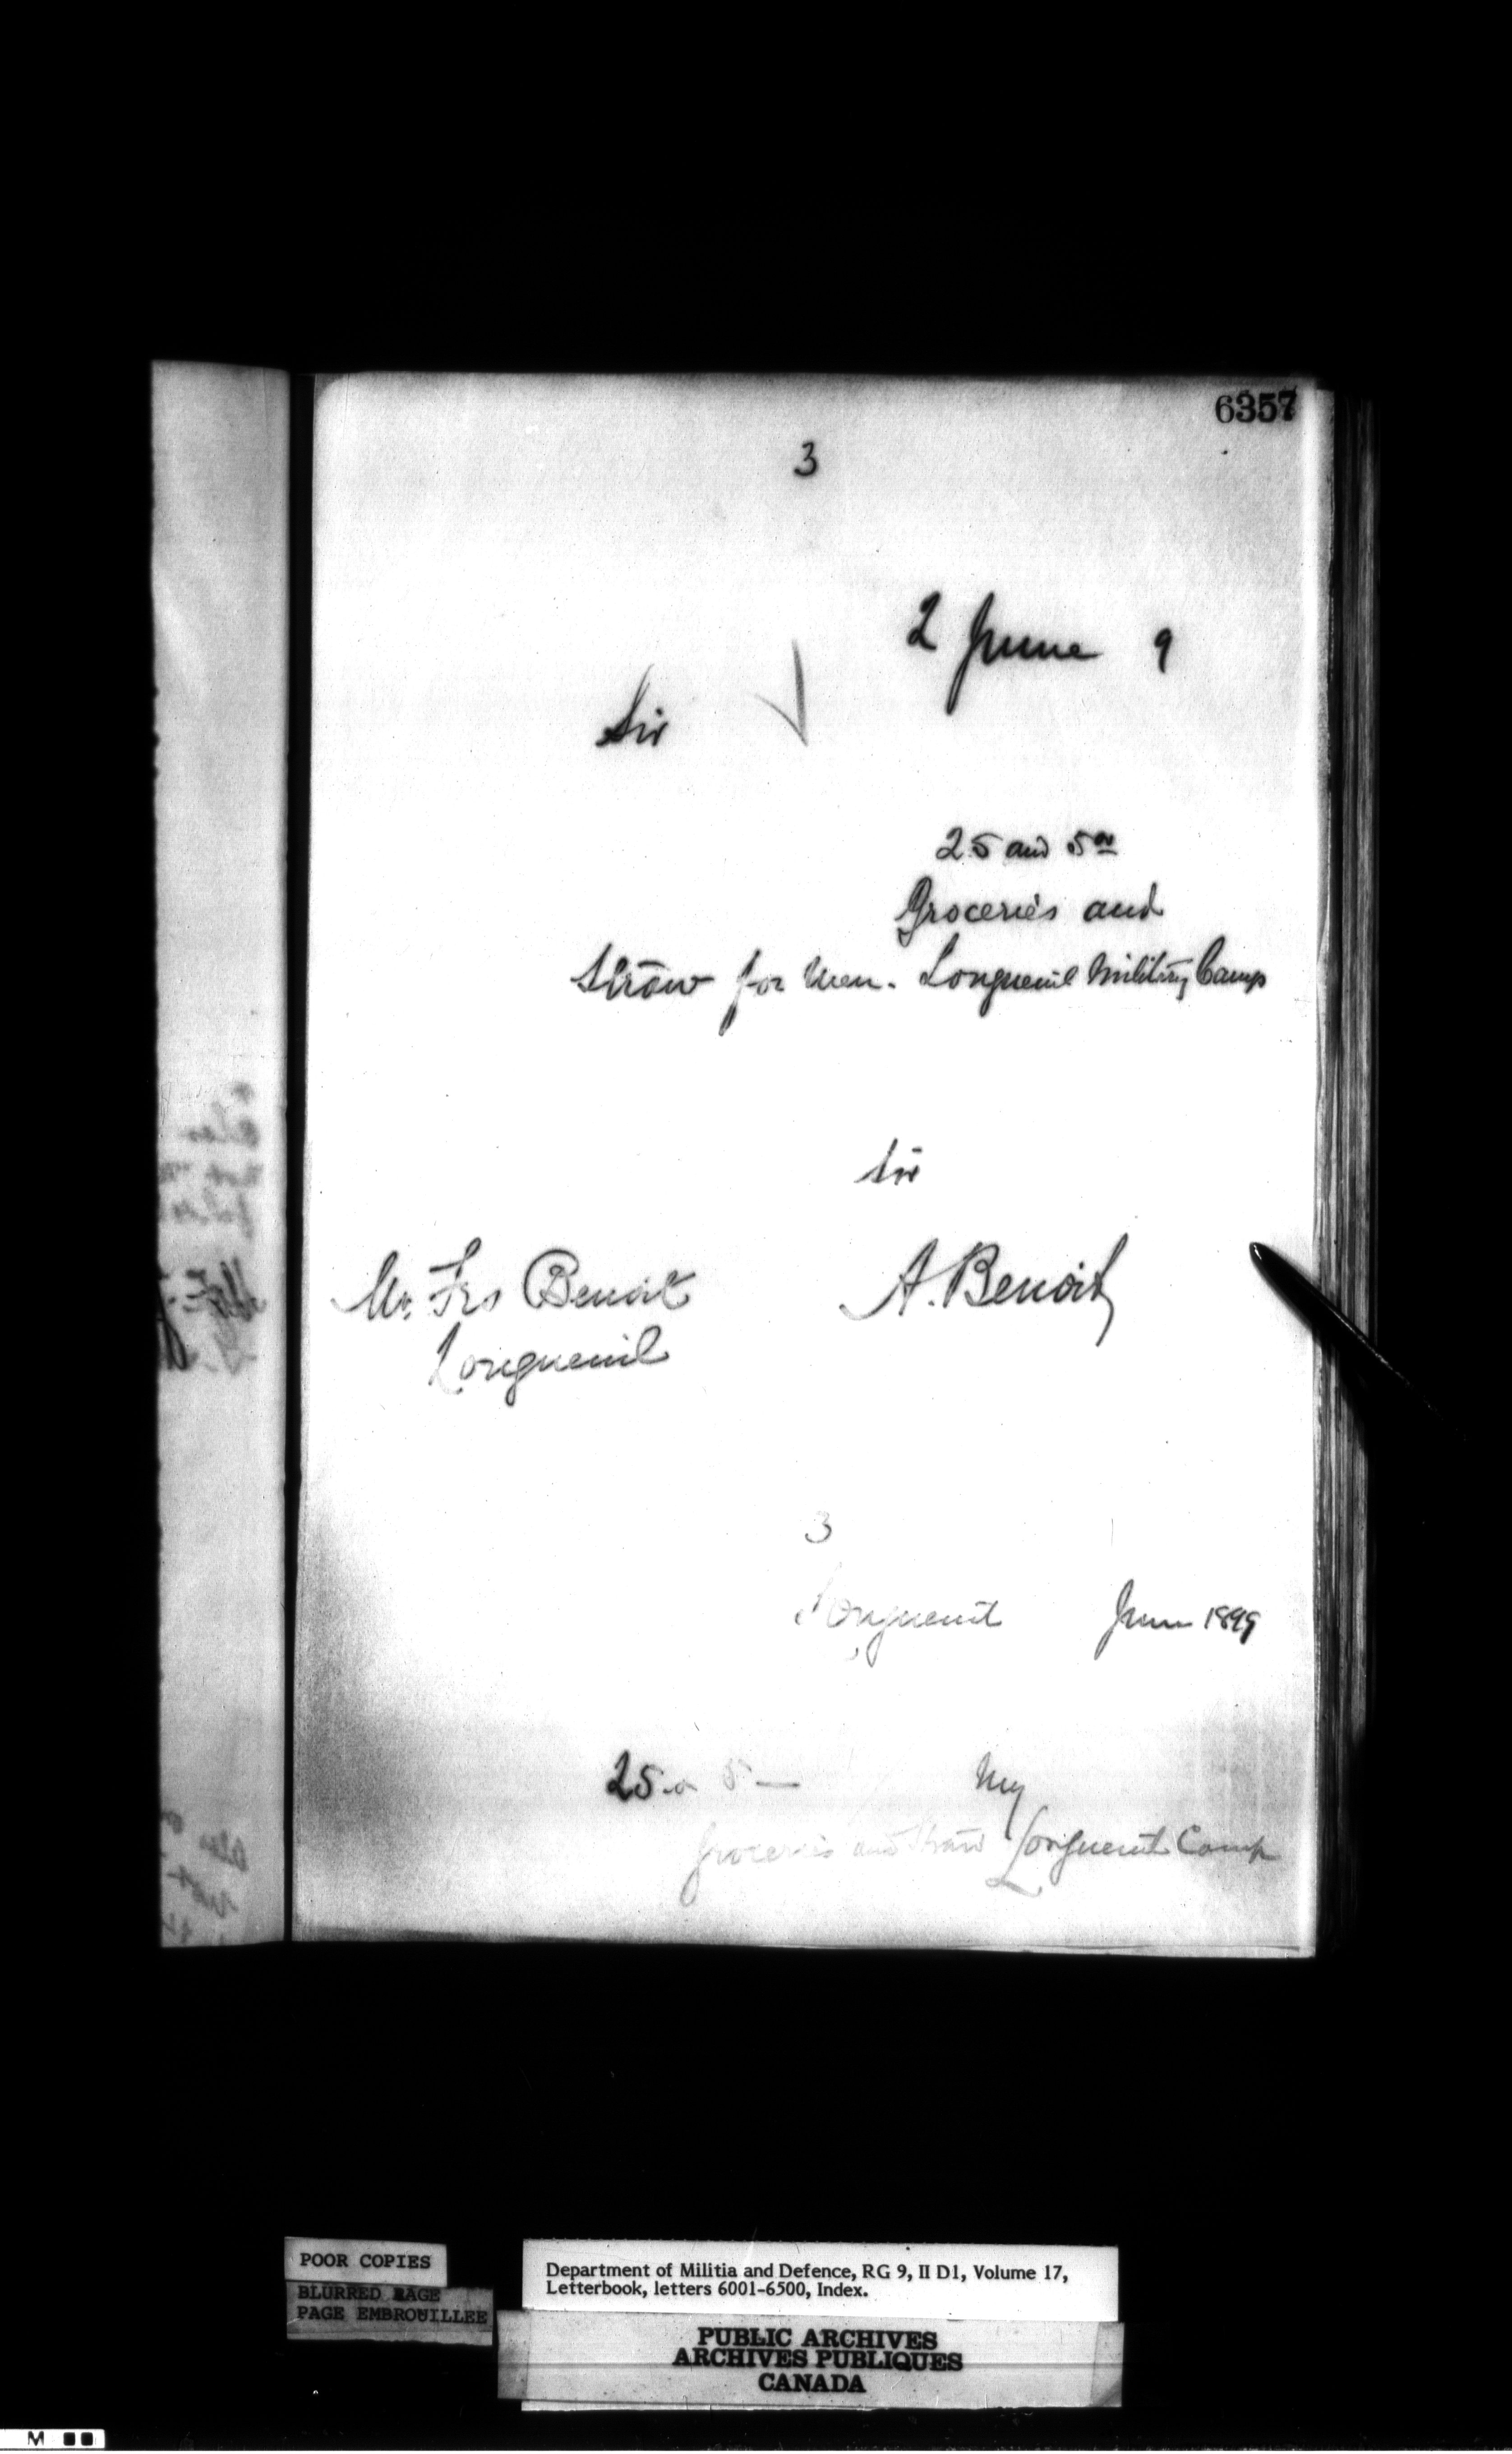 6357
3
2 June 9
Sir
25 and 5
Groceries and
Straw for Men. Longueuil Military Camp
Sir
Mr. Frs Benoit A. Benoit
Longueuil
3
Longueuil June 1899
25 5 —
Groceries and Straw Longueuil Camp
POOR COPIES
BLURRED PAGE
PAGE EMBROUILLEE
Department of Militia and Defence, RG 9, II D1, Volume 17,
Letterbook, letters 6001-6500, Index.
PUBLIC ARCHIVES
ARCHIVES PUBLIQUES
CANADA
M